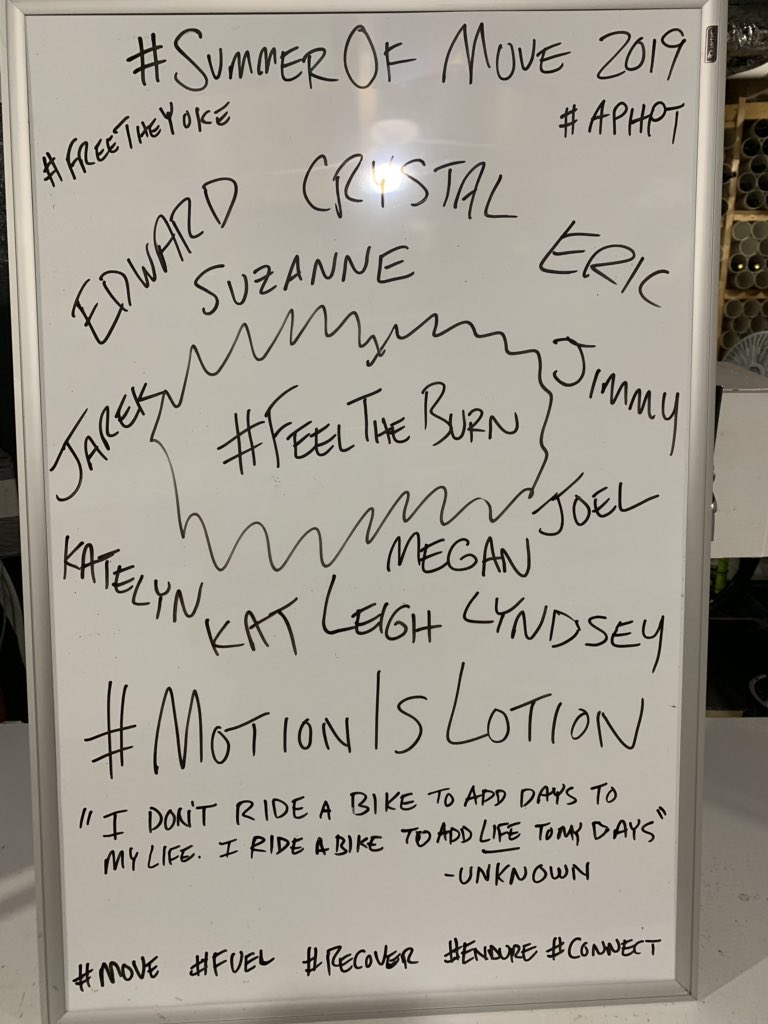 #SUMMER OF MOVE 2019
#FREETHEYOKE
#APHPT
EDWARD
CRYSTAL
SUZANNE
ERIC
JAREK
JIMMY
#FEELTHEBURN
JOEL
MEGAN
KATELYN
KAT LEIGH LYNDSEY
#MOTIONISLOTION
"I DON'T RIDE A BIKE TO ADD DAYS TO
MY LIFE. I RIDE A BIKE TO ADD LIFE TO MY DAYS"
-UNKNOWN
#MOVE #FUEL #RECOVER #ENDURE #CONNECT